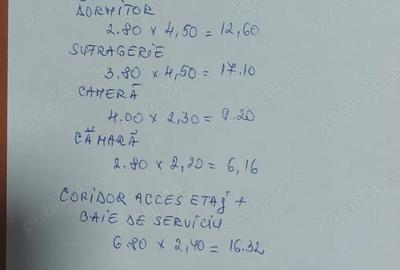 DORMITOR
2.80 x 4,50 = 12,60
SUFRAGERIE
3.80 x 4,50 = 17.10
CAMERĂ
4.00 x 2,30 = 9.20
CĂMARĂ
2.80 x 2,20 = 6,16
CORIDOR ACCES ETAJ +
BAIE DE SERVICIU
6.80 x 2,40 = 16.32